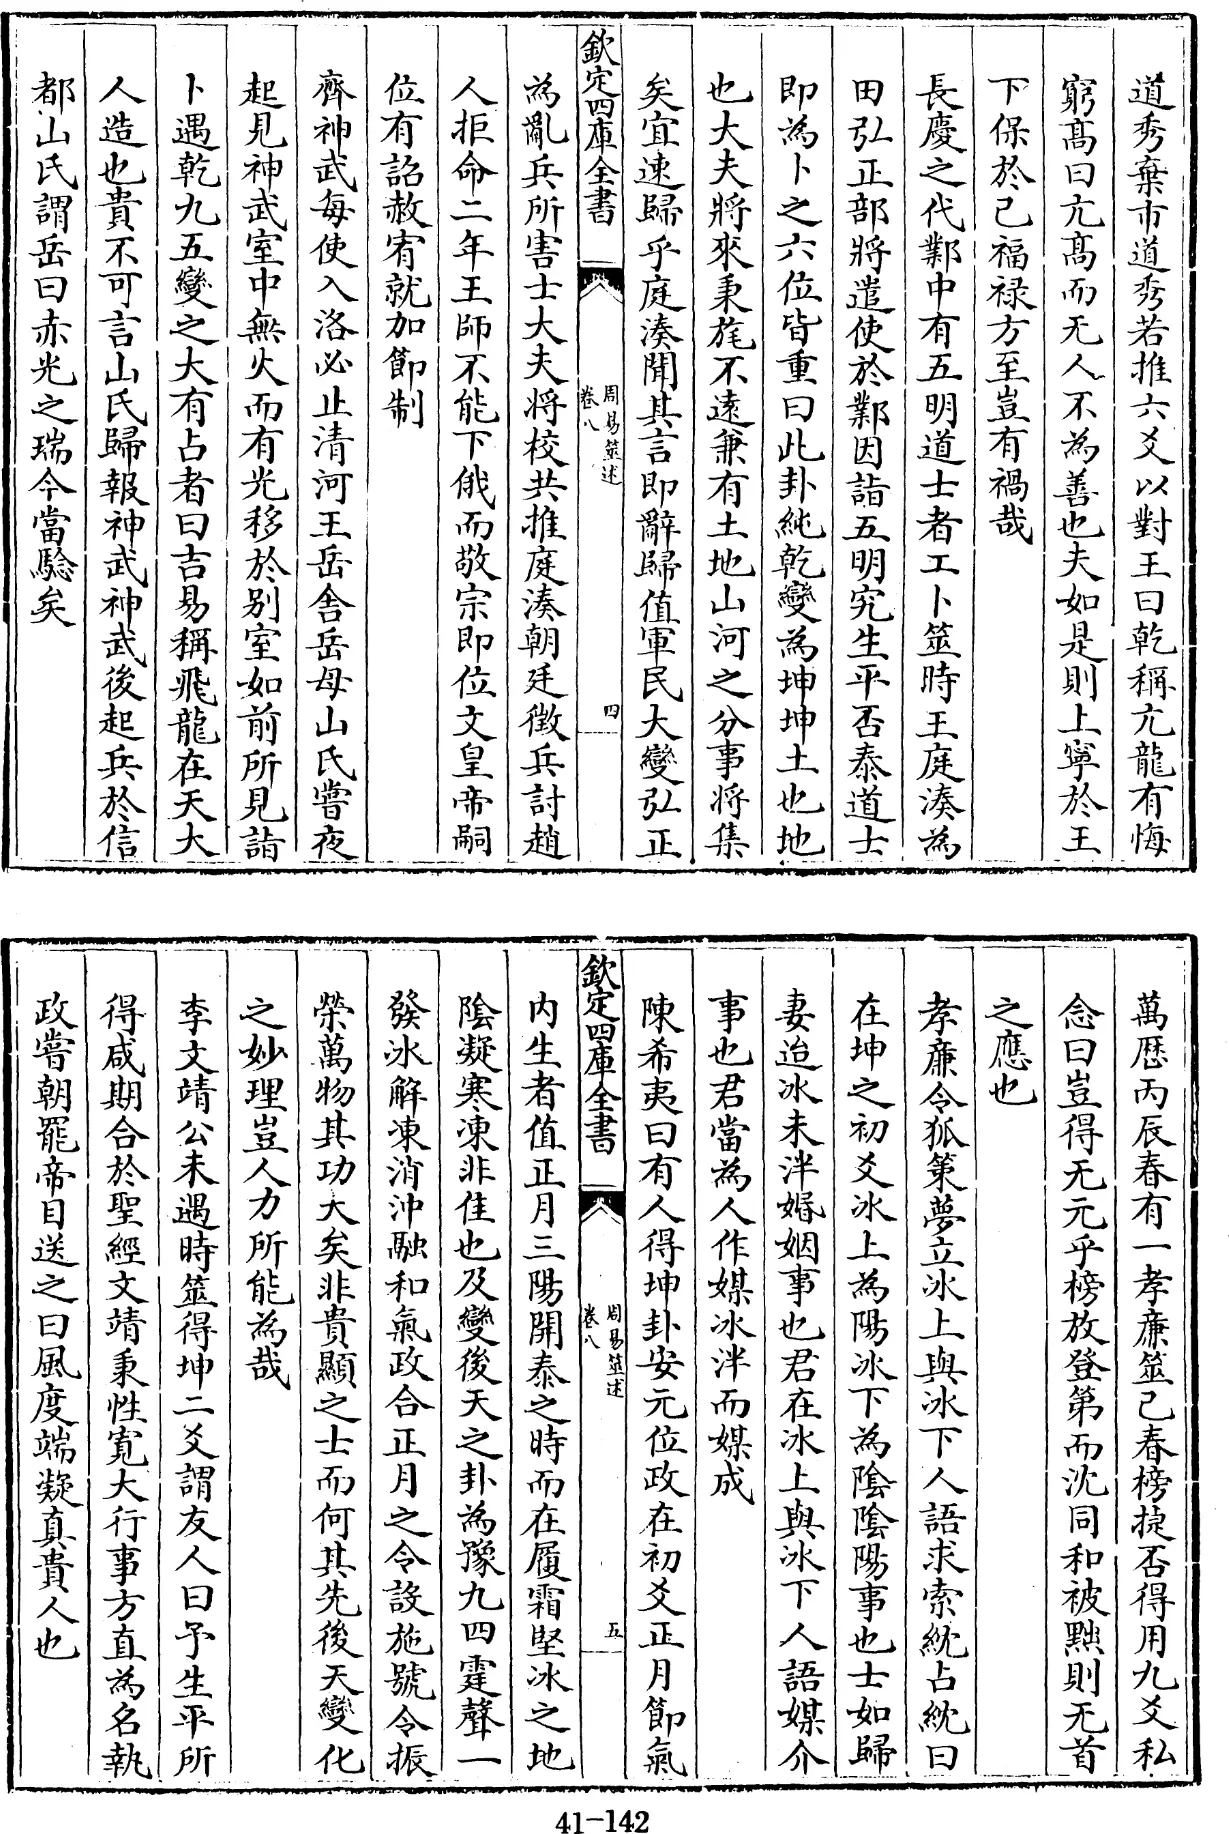 道秀棄市道秀若推六爻以對王曰乾稱亢龍有悔
窮髙曰亢髙而无人不為善也夫如是則上寧於王
下保於己福祿方至豈有禍哉
長慶之代鄴中有五明道士者工卜筮時王庭湊為
田弘正部將遣使於鄴因詣五明究生平否泰道士
即為卜之六位皆重曰此卦純乾變為坤坤土也地
也大夫將來秉旄不逺兼有土地山河之分事將集
矣宜速歸乎庭湊聞其言即辭歸值軍民大變弘正
欽定四庫全書
周易筮述
卷八
四
為亂兵所害士大夫將校共推庭湊朝廷徵兵討趙
人拒命二年王師不能下俄而敬宗即位文皇帝嗣
位有詔赦宥就加節制
齊神武每使入洛必止清河王岳舎岳母山氏嘗夜
起見神武室中無火而有光移於别室如前所見詣
卜遇乾九五變之大有占者曰吉易稱飛龍在天大
人造也貴不可言山氏歸報神武神武後起兵於信
都山氏謂岳曰赤光之瑞今當驗矣
萬厯丙辰春有一孝亷筮己春榜㨗否得用九爻私
念曰豈得无元乎榜放登第而沈同和被黜則无首
之應也
孝亷令狐策夢立冰上與冰下人語求索紞占紞曰
在坤之初爻冰上為陽冰下為隂隂陽事也士如歸
妻迨冰未泮婚姻事也君在冰上與冰下人語媒介
事也君當為人作媒冰泮而媒成
陳希夷曰有人得坤卦安元位政在初爻正月節氣
欽定四庫全書
周易筮述
卷八
五
内生者值正月三陽開泰之時而在履霜堅冰之地
隂凝寒凍非佳也及變後天之卦為豫九四霆聲一
發冰解凍消沖融和氣政合正月之令設施號令振
榮萬物其功大矣非貴顯之士而何其先後天變化
之妙理豈人力所能為哉
李文靖公未遇時筮得坤二爻謂友人曰予生平所
得咸期合於聖經文靖秉性寛大行事方直為名執
政嘗朝罷帝目送之曰風度端凝真貴人也
41-142